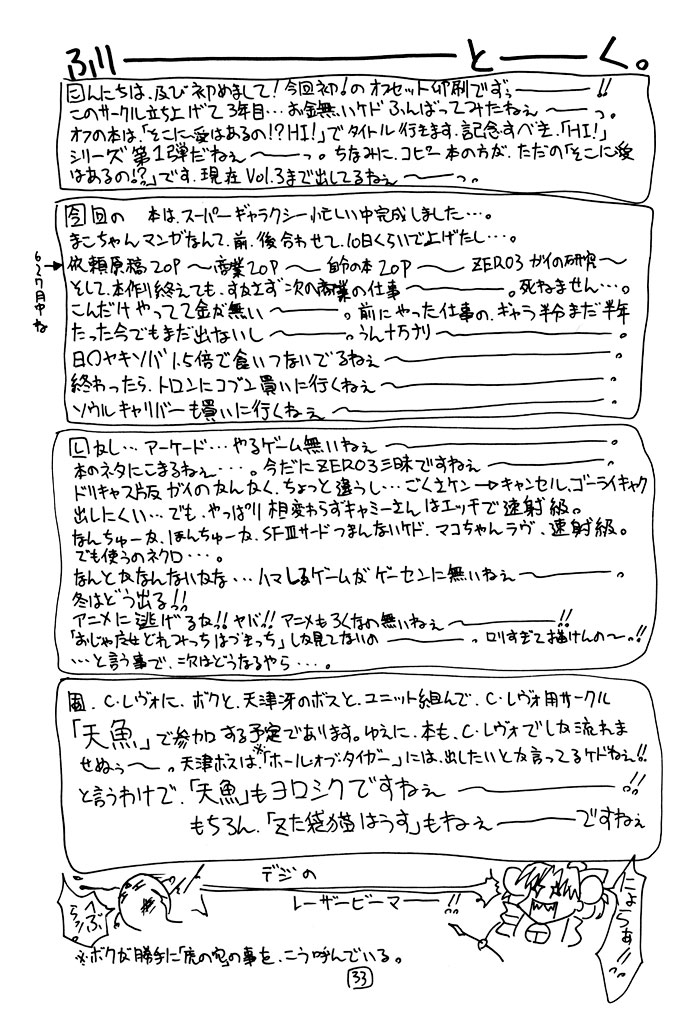 ふリーーーとーーく。
こんにちは、及び初めまして!今回初!のオフセット印刷ですぅ―――!!
このサークル立ち上げて3年目…お金無いケドふんばってみたねぇ～―っ。
オフの本は、「そこに愛はあるの!?HI!」でタイトル行きます、記念すべき、「HI!」
シリーズ第1弾だねぇ～―っ。ちなみに、コピー本の方が、ただの「そこに愛
はあるの!?」です、現在Vol.3まで出してるねぇ～―っ。
今回の 本は、スーパーギャラクシー忙しい中完成しました…。
まこちゃんマンガなんて、前、後合わせて、10日くらいで上げたし…。
6~7月中ね
依頼原稿20P～商業20P～自分の本20P～ZERO3ガイの研究～
そして、本作り終えても、すぐさま次の商業の仕事―――。死ねません…。
こんだけやってて金が無い～―――。前にやった仕事の、ギャラ半分まだ半年
たった今でもまだ出ないし～―――。うん十万ナリ～―――。
日〇ヤキソバ1.5倍で食いつないでるねぇ～―――。
終わったら、トロンにコブン買いに行くねぇ～―――。
ソウルキャリバーも買いに行くねぇ～―――。
しかし…アーケード…やるゲーム無いねぇ～―――。
本のネタにこまるねぇ…。今だにZERO3三昧ですねぇ～―――。
ドリキャス版ガイのなんなく、ちょっと違うし…ごくさケン→キャンセル、ゴーライキャク
出しにくい…でも、やっぱり相変わらずキャミーさんはエッチで速射級。
なんちゅーか、ほんちゅーか、SFⅢサードつまんないケド、マコちゃんラヴ、速射級。
でも使うのネクロ…。
なんとかなんないかな…ハマしるゲームがゲーセンに無いねぇ～―――。
冬はどう出る!!
アニメに逃げるな!!ヤバ!!アニメもろくなの無いねぇ～―――!!
「おじゃ魔女どれみっちはづきっち」しか見てないの～―――。ロリすぎて描けんの～。!!
…と言う事で、次はどうなるやら…。
C・レヴォに、ボクと、天津冴のボスと、ユニット組んで、C・レヴォ用サークル
「天魚」で参加する予定であります。ゆえに、本も、C・レヴォでしか流れま
せぬぅ～―。天津ボスは、※「ホールオブタイガー」には、出したいとか言ってるケドねぇ!!
と言うわけで、「天魚」もヨロシクですねぇ～―――!!
もちろん、「ぶた袋猫はうす」もねぇ―――ですねぇ
デジの
レーザービーマ――!!
へぶらっ!!
にょらぁ!!
※ボクが勝手に「虎の穴」の事を、こう呼んでいる。
33